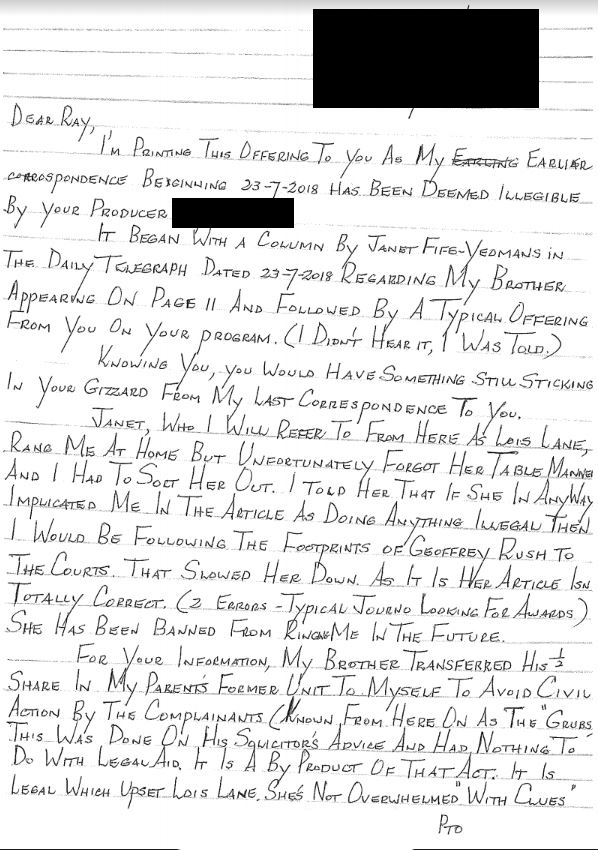 DEAR RAY,
I'M PRINTING THIS OFFERING TO YOU AS MY EARLING EARLIER
CORRESPONDENCE BEGINNING 23-7-2018 HAS BEEN DEEMED ILLEGIBLE
BY YOUR PRODUCER
IT BEGAN WITH A COLUMN BY JANET FIFE-YEOMANS IN
THE DAILY TELEGRAPH DATED 23-7-2018 REGARDING MY BROTHER
APPEARING ON PAGE 11 AND FOLLOWED BY A TYPICAL OFFERING
FROM YOU ON YOUR PROGRAM. (I DIDN'T HEAR IT, I WAS TOLD.)
KNOWING YOU, YOU WOULD HAVE SOMETHING STILL STICKING
IN YOUR GIZZARD FROM MY LAST CORRESPONDENCE TO YOU.
JANET, WHO I WILL REFER TO FROM HERE AS LOIS LANE,
RANG ME AT HOME BUT UNFORTUNATELY FORGOT HER TABLE MANNE
AND I HAD TO SORT HER OUT. I TOLD HER THAT IF SHE IN ANYWAY
IMPLICATED ME IN THE ARTICLE AS DOING ANYTHING ILLEGAL THEN
I WOULD BE FOLLOWING THE FOOTPRINTS OF GEOFFREY RUSH TO
THE COURTS. THAT SLOWED HER DOWN. AS IT IS HER ARTICLE ISN
TOTALLY CORRECT. (2 ERRORS - TYPICAL JOURNO LOOKING FOR AWARDS)
SHE HAS BEEN BANNED FROM RINGING ME IN THE FUTURE.
FOR YOUR INFORMATION, MY BROTHER TRANSFERRED HIS 1/2
SHARE IN MY PARENT'S FORMER UNIT TO MYSELF TO AVOID CIVIL
ACTION BY THE COMPLAINANTS (KNOWN FROM HERE ON AS THE "GRUBS
THIS WAS DONE ON HIS SOLICITOR'S ADVICE AND HAD NOTHING TO
DO WITH LEGAL AID. IT IS A BY PRODUCT OF THAT ACT. IT IS
LEGAL WHICH UPSET LOIS LANE. SHE'S NOT OVERWHELMED "WITH CLUES"
PTO